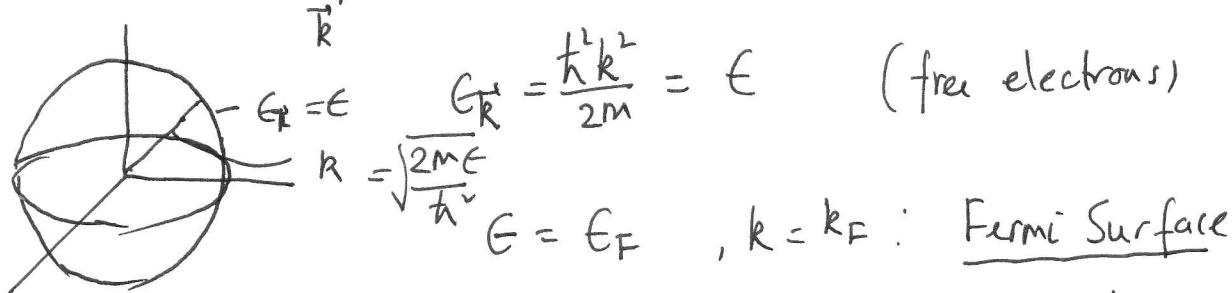 k⃗
ϵ_k⃗ = ϵ
ϵ_k⃗ = ħ²k²/2m = ϵ (free electrons)
k = √(2mϵ/ħ²)
ϵ = ϵ_F , k = k_F : Fermi Surface